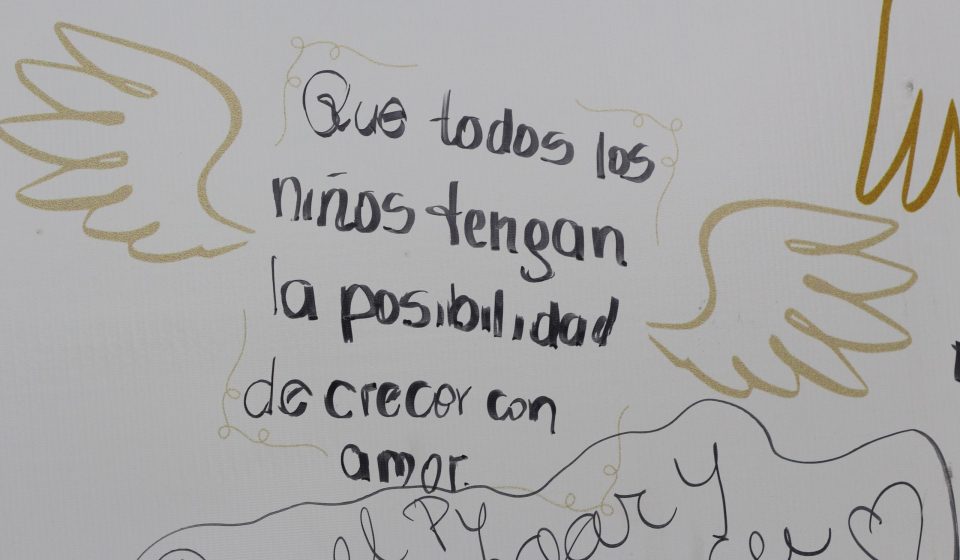 Que todos los
niños tengan
la posibilidad
de crecer con
amor.
el
y